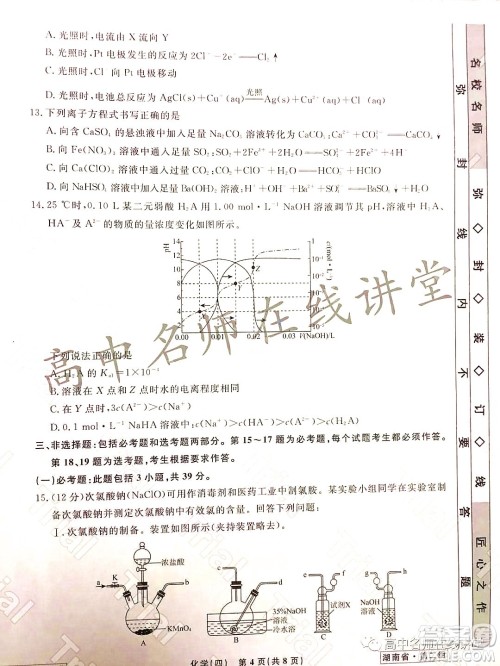 A. 光照时,电流由 X 流向 Y
B. 光照时,Pt 电极发生的反应为 2Cl⁻−2e⁻══Cl₂↑
C. 光照时,Cl⁻向 Pt 电极移动
D. 光照时,电池总反应为 AgCl(s)+Cu⁺(aq)══光照══Ag(s)+Cu²⁺(aq)+Cl⁻(aq)
13. 下列离子方程式书写正确的是
A. 向含 CaSO₄ 的悬浊液中加入足量 Na₂CO₃ 溶液转化为 CaCO₃:Ca²⁺+CO₃²⁻══CaCO₃↓
B. 向 Fe(NO₃)₃ 溶液中通入足量 SO₂:SO₂+2Fe³⁺+2H₂O══SO₄²⁻+2Fe²⁺+4H⁺
C. 向 Ca(ClO)₂ 溶液中通入过量 CO₂:CO₂+ClO⁻+H₂O══HCO₃⁻+HClO
D. 向 NaHSO₄ 溶液中加入足量 Ba(OH)₂ 溶液:H⁺+OH⁻+Ba²⁺+SO₄²⁻══BaSO₄↓+H₂O
14. 25 ℃时,0.10 L 某二元弱酸 H₂A 用 1.00 mol·L⁻¹ NaOH 溶液调节其 pH,溶液中 H₂A、
HA⁻及 A²⁻的物质的量浓度变化如图所示。
pH
14
12
10
8
6
4
2
X
Y
Z
0.00 0.01 0.02 0.03 V(NaOH)/L
c/(mol·L⁻¹)
下列说法正确的是
B. 溶液在 X 点和 Z 点时水的电离程度相同
C. 在 Y 点时,3c(A²⁻)>c(Na⁺)
D. 0.1 mol·L⁻¹ NaHA 溶液中:c(Na⁺)>c(HA⁻)>c(A²⁻)>c(H₂A)
三、非选择题:包括必考题和选考题两部分。第 15~17 题为必考题,每个试题考生都必须作答。
第 18、19 题为选考题,考生根据要求作答。
(一)必考题:此题包括 3 小题,共 39 分。
15. (12 分)次氯酸钠(NaClO)可用作消毒剂和医药工业中制氯胺。某实验小组同学在实验室制
备次氯酸钠并测定次氯酸钠中有效氯的含量。回答下列问题:
Ⅰ. 次氯酸钠的制备。装置如图所示(夹持装置略去)。
浓盐酸
a K
KMnO₄
A
35%NaOH
溶液
冷水浴
B
试剂X
C
NaOH
溶液
D
化学(四) 第 4 页(共 8 页)
名校名师
弥 封 线 内 不 要 答 题
弥◇封◇装◇订◇线
匠心之作
高中名师在线讲堂
湖南省·